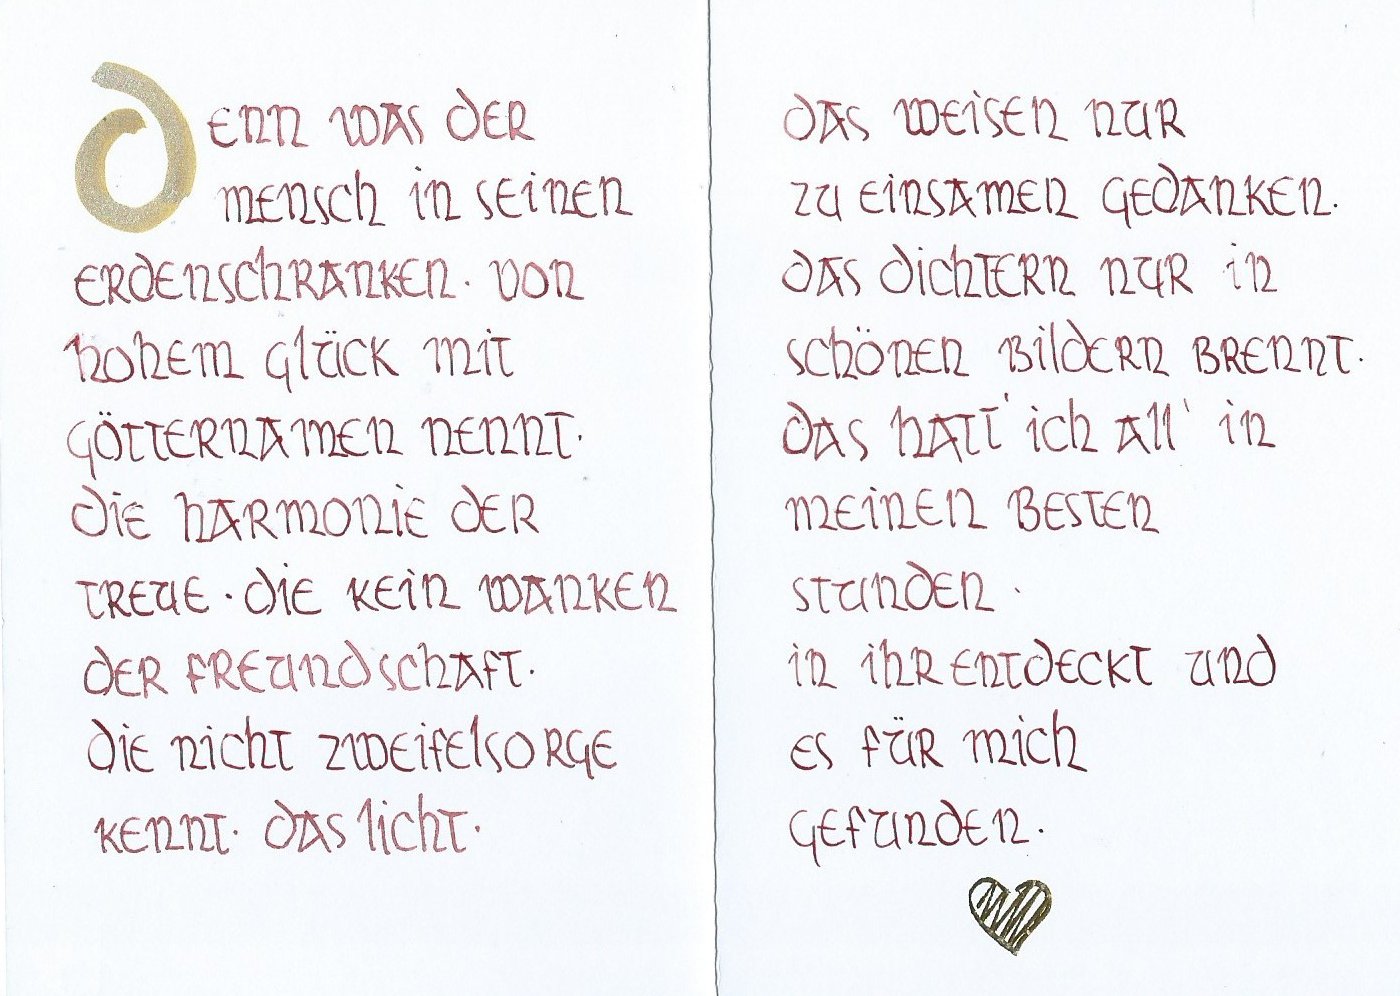 Denn was der
Mensch in seinen
Erdenschranken. von
hohem Glück mit
Götternamen nennt.
die Harmonie der
Treue. die kein Wanken
der Freundschaft.
die nicht Zweifelsorge
kennt. das Licht.
das Weisen nur
zu einsamen Gedanken.
das Dichtern nur in
schönen Bildern brennt.
das hatt' ich all' in
meinen besten
Stunden.
in ihr entdeckt und
es für mich
gefunden.